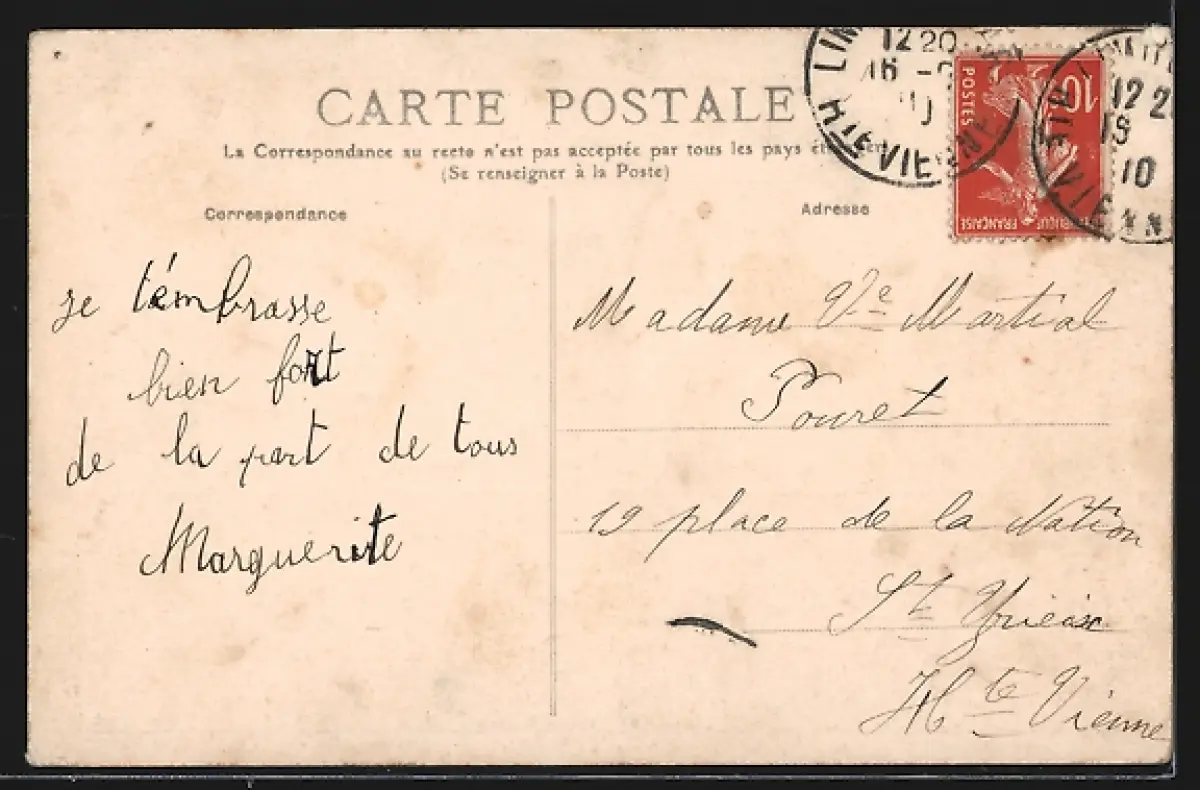 CARTE POSTALE
La Correspondance au recto n'est pas acceptée par tous les pays étrangers
(Se renseigner à la Poste)
Correspondance
Adresse
12 20
16
VIENNE
10
POSTES
RÉPUBLIQUE FRANÇAISE
12 2
10
VIENN
je t'émbrasse
bien fort
de la part de tous
Marguerite
Madame Ve Martial
Pouret
19 place de la Nation
St Yrieix
Hte Vienne